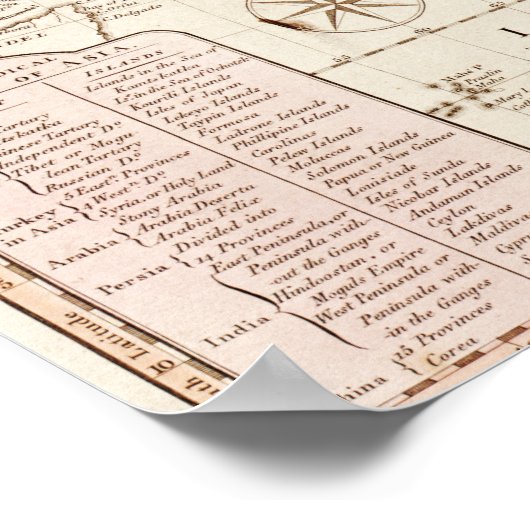 C. Delgado
DICAL
OF ASIA.
ISLANDS
Islands in the Sea of
Kamtschatka
Is. in the Sea of Ochotsk
Kourili Islands
Isls. of Japan
Lekeyo Islands
Taypin Islands
Formosa
Ladrone Islands
Phillipine Islands
Carolinas
Pelew Islands
Moluccas
Solomon Islands
Papua or New Guinea
Lousiads
Isles of Sunda
Nicobar Islands
Andaman Islands
Ceylon
Lakdivas
Maldi
Cyp
Tartary
Chinese Tartary
Independent Do.
Tibet or
Russian Do.
Eastn. Provinces
Westn. Do.
Syria or Holy Land
Stony Arabia
Arabia Deserta
Arabia Felix
Divided into
14 Provinces
East Peninsula or
Peninsula with-
out the Ganges
Hindoostan, or
Moguls Empire
West Peninsula or
Peninsula with-
in the Ganges
15 Provinces
Corea
Arabia
Persia
India
hina
Latitude